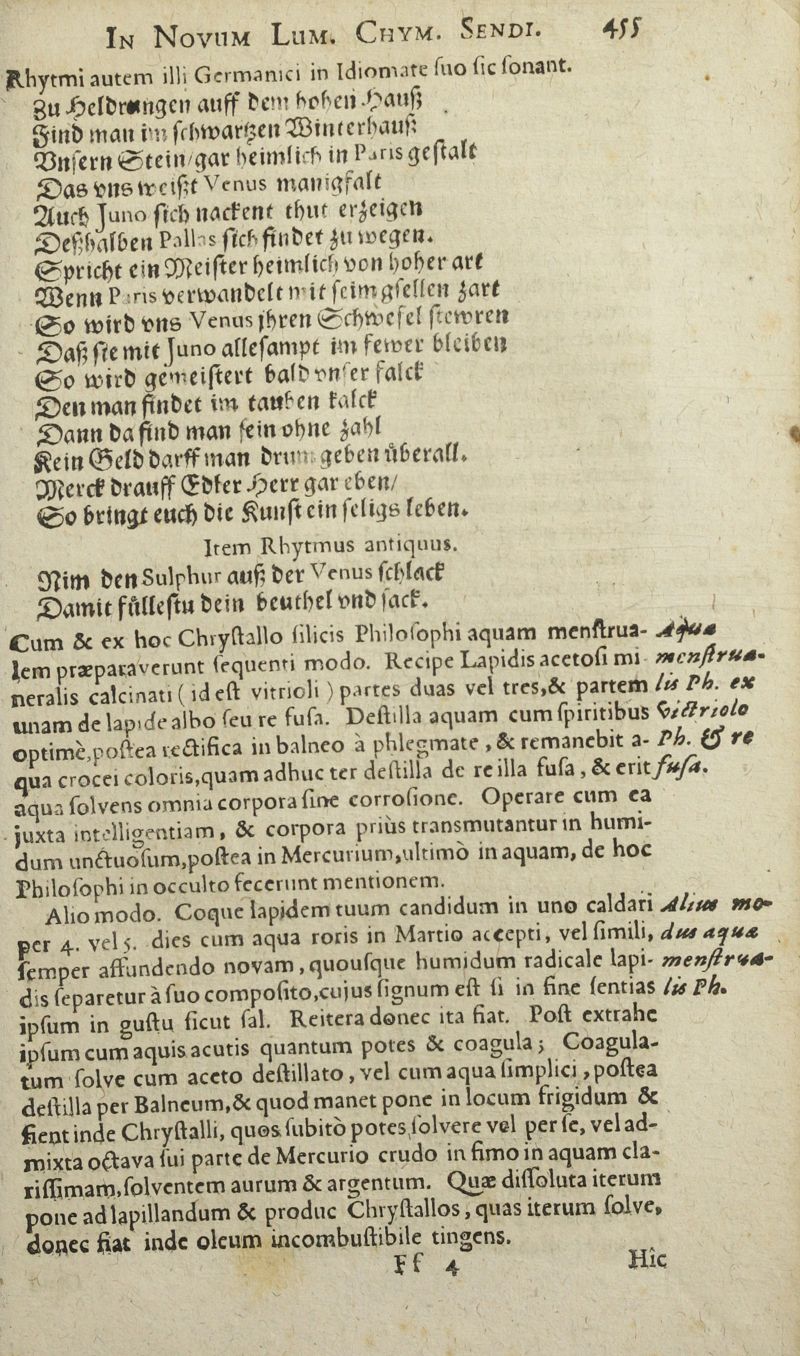 IN NOVUM LUM. CHYM. SENDI. 455
Rhytmi autem illi Germanici in Idiomate ſuo ſic ſonant.
Zu Heldrungen auff dem hohen Hauß
Find man im ſchwartzen Winterhauß
Vnſern Stein/gar heimlich in Paris geſtalt
Das vns weißt Venus manigfalt
Auch Juno ſich nackent thut erzeigen
Deßhalben Pallas ſich findet zu wegen.
Spricht ein Meiſter heimlich von hoher art
Wenn Paris verwandelt mit ſeim gſellen zart
So wird vns Venus jhren Schwefel ſtewren
Daß ſie mit Juno alleſampt im fewer bleiben
So wird gemeiſtert bald vnſer falck
Den man findet im tauben kalck
Dann da find man ſein ohne zahl
Kein Geld darff man drum geben überall.
Merck drauff Edler Herr gar eben/
So bringt euch die Kunſt ein ſeligs leben.
Item Rhytmus antiquus.
Nim den Sulphur auß der Venus ſchlack
Damit fülleſtu dein beuthel vnd ſack.
Cum & ex hoc Chryſtallo ſilicis Philoſophi aquam menſtrua- Aqua
lem præparaverunt ſequenti modo. Recipe Lapidis acetoſi mi- menſtrua-
neralis calcinati ( id eſt vitrioli ) partes duas vel tres, & partem lis Ph. ex
unam de lapide albo ſeu re fuſa. Deſtilla aquam cum ſpiritibus Vitriolo
optimè, poſtea rectifica in balneo à phlegmate, & remanebit a- Ph. & re
qua crocei coloris, quam adhuc ter deſtilla de re illa fuſa, & erit fuſa.
aqua ſolvens omnia corpora ſine corroſione. Operare cum ea
juxta intelligentiam, & corpora priùs transmutantur in humi-
dum unctuoſum, poſtea in Mercurium, ultimò in aquam, de hoc
Philoſophi in occulto fecerunt mentionem.
Alio modo. Coque lapidem tuum candidum in uno caldari Alius mo-
per 4. vel 5. dies cum aqua roris in Martio accepti, vel ſimili, dus aquæ
ſemper affundendo novam, quouſque humidum radicale lapi- menſtrua-
dis ſeparetur à ſuo compoſito, cujus ſignum eſt ſi in fine ſentias lis Ph.
ipſum in guſtu ſicut ſal. Reitera donec ita fiat. Poſt extrahe
ipſum cum aquis acutis quantum potes & coagula; Coagula-
tum ſolve cum aceto deſtillato, vel cum aqua ſimplici, poſtea
deſtilla per Balneum, & quod manet pone in locum frigidum &
fient inde Chryſtalli, quos ſubitò potes ſolvere vel per ſe, vel ad-
mixta octava ſui parte de Mercurio crudo in fimo in aquam cla-
riſſimam, ſolventem aurum & argentum. Quæ diſſoluta iterum
pone ad lapillandum & produc Chryſtallos, quas iterum ſolve,
donec fiat inde oleum incombuſtibile tingens.
Ff 4 Hîc